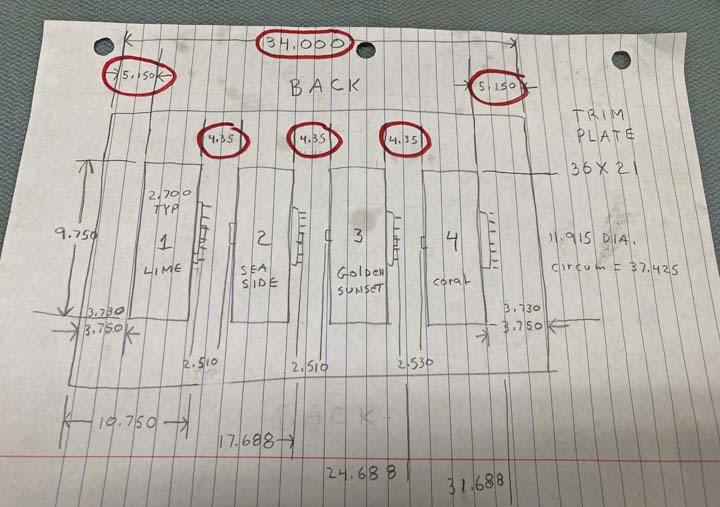 34.000
5.150
5.150
BACK
4.35
4.35
4.35
TRIM
PLATE
36 X 21
2.700
TYP
9.750
1
LIME
2
SEA
SIDE
3
GOLDEN
SUNSET
4
coral
11.915 DIA.
circum = 37.425
3.730
3.750
3.730
3.750
2.510
TYP
2.510
2.530
BACK
10.750
17.688
24.688
31.688